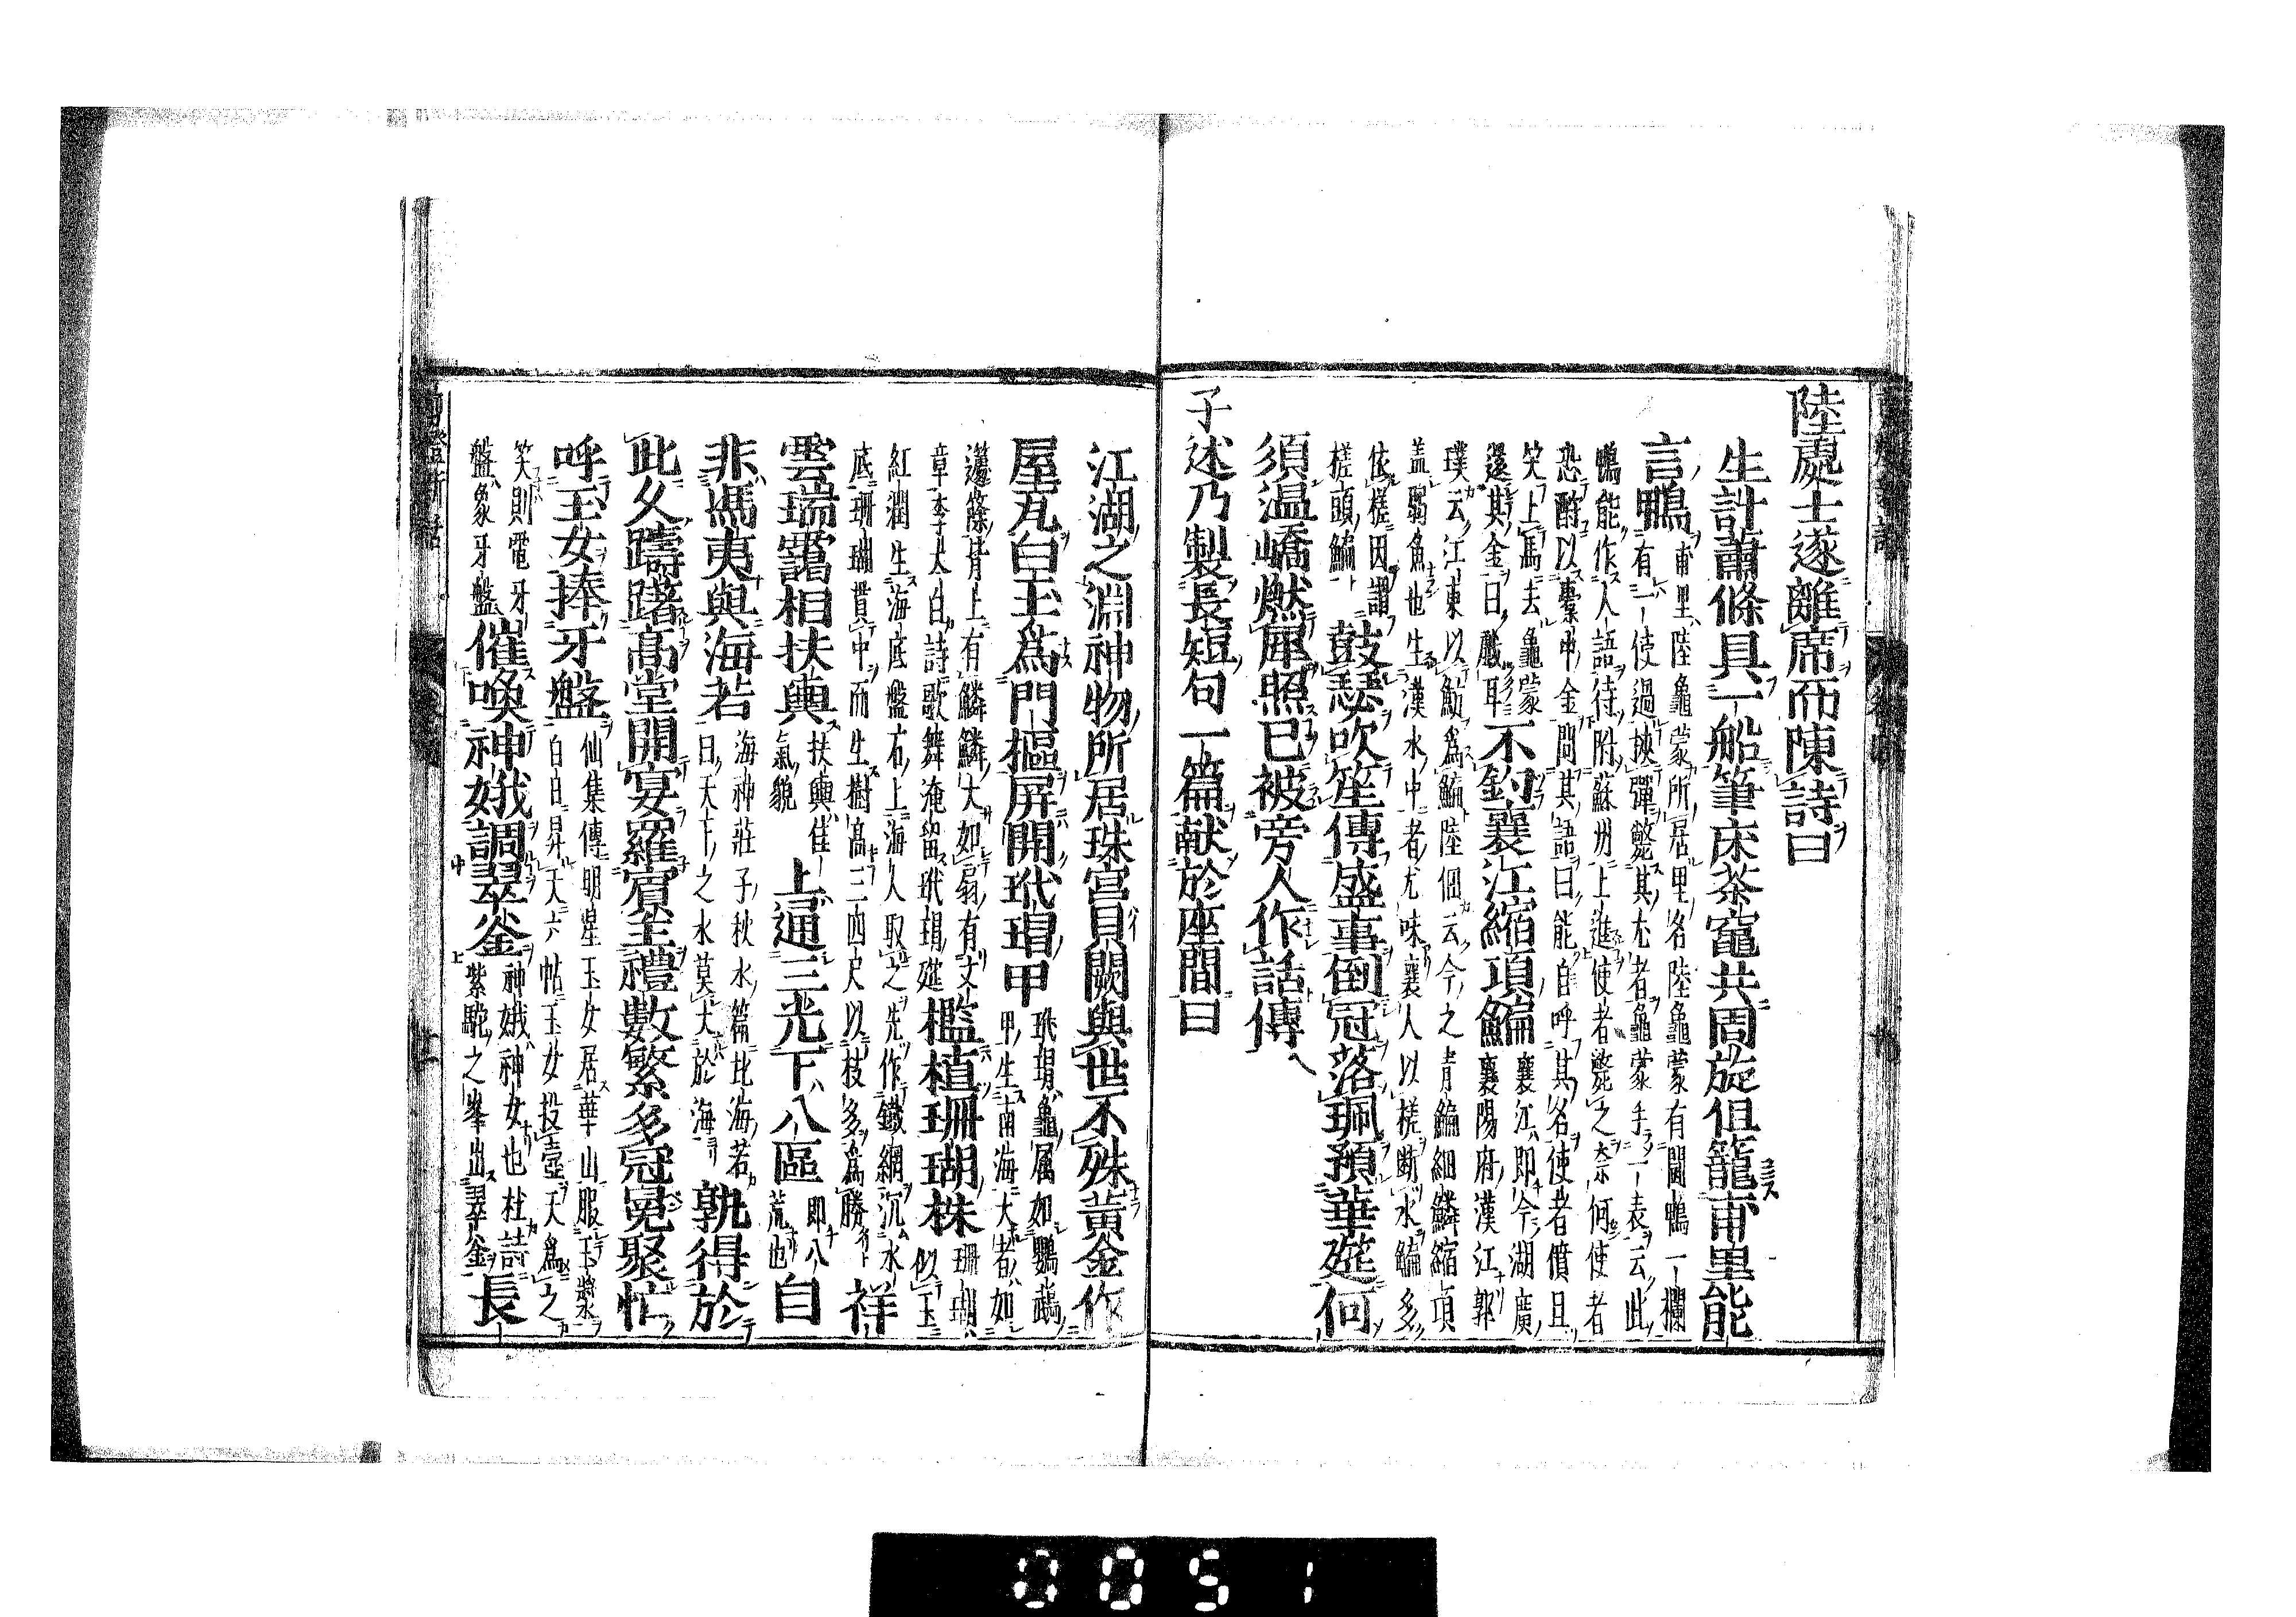 陸處士遂離席而陳詩曰
生計蕭條具一船筆床茶竈共周旋但籠甫里能
言鴨甫里陸龜蒙所居里名陸龜蒙有鬪鴨一欄
有一使過挾彈斃其尤者龜蒙手一表云此
鴨能作人語待附蘇州上進使者斃之奈何使者
恐酧以橐中金問其語曰能自呼其名使者憤且
笑上馬去龜蒙
還其金曰戲耳不釣襄江縮項鯿襄江即今湖廣
襄陽府漢江郭
璞云江東以魴爲鯿陸佃云今之青鯿細鱗縮項
盖弱魚也生漢水中者尤味襄人以槎断水鯿多
依槎因謂
槎頭鯿鼓瑟吹笙傳盛事倒冠落珮預華筵何
須温嶠燃犀照已被旁人作話傳
子述乃製長短句一篇献於座間曰
江湖之淵神物所居珠宮貝闕與世不殊黃金作
屋瓦白玉爲門樞屏開玳瑁甲玳瑁龜属如鸚鵡
甲生南海大者如
籧篨背上有鱗鱗大如扇有文
章李太白詩歌舞淹留玳瑁筵檻植珊瑚株珊瑚似玉
紅潤生海底盤石上海人取之先作鐵網沉水
底珊瑚貫中而生樹高三四尺以枝多爲勝祥
雲瑞靄相扶輿扶輿佳
氣貌上通三光下八區即八
荒也自
非馮夷與海若海神莊子秋水篇北海若
曰天下之水莫大於海孰得於
此久躊躇高堂開宴羅賓主禮數繁多冠冕聚忙
呼玉女捧牙盤仙集傳明星玉女居華山服玉漿
白日昇天六帖玉女投壺天爲之
笑則電牙
盤象牙盤催喚神娥調翠釡神娥神女也杜詩
紫駝之峯出翠釡長